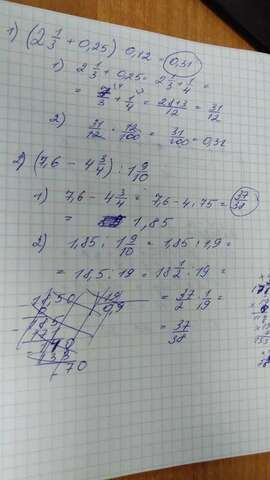 1) (2 1/3 + 0,25) 0,12 = 0,31
1) 2 1/3 + 0,25 = 2 1/3 + 1/4 =
= 7/3 + 1/4 = 28+3/12 = 31/12
2) 31/12 · 12/100 = 31/100 = 0,31
2) (7,6 - 4 3/4) : 1 9/10
1) 7,6 - 4 3/4 = 7,6 - 4,75 = 37/38
= 1,85
2) 1,85 : 1 9/10 = 1,85 : 1,9 =
= 18,5 : 19 = 18 1/2 : 19 =
= 37/2 · 1/19 =
= 37/38
18,50 19
0,9
185
171
140
133
70